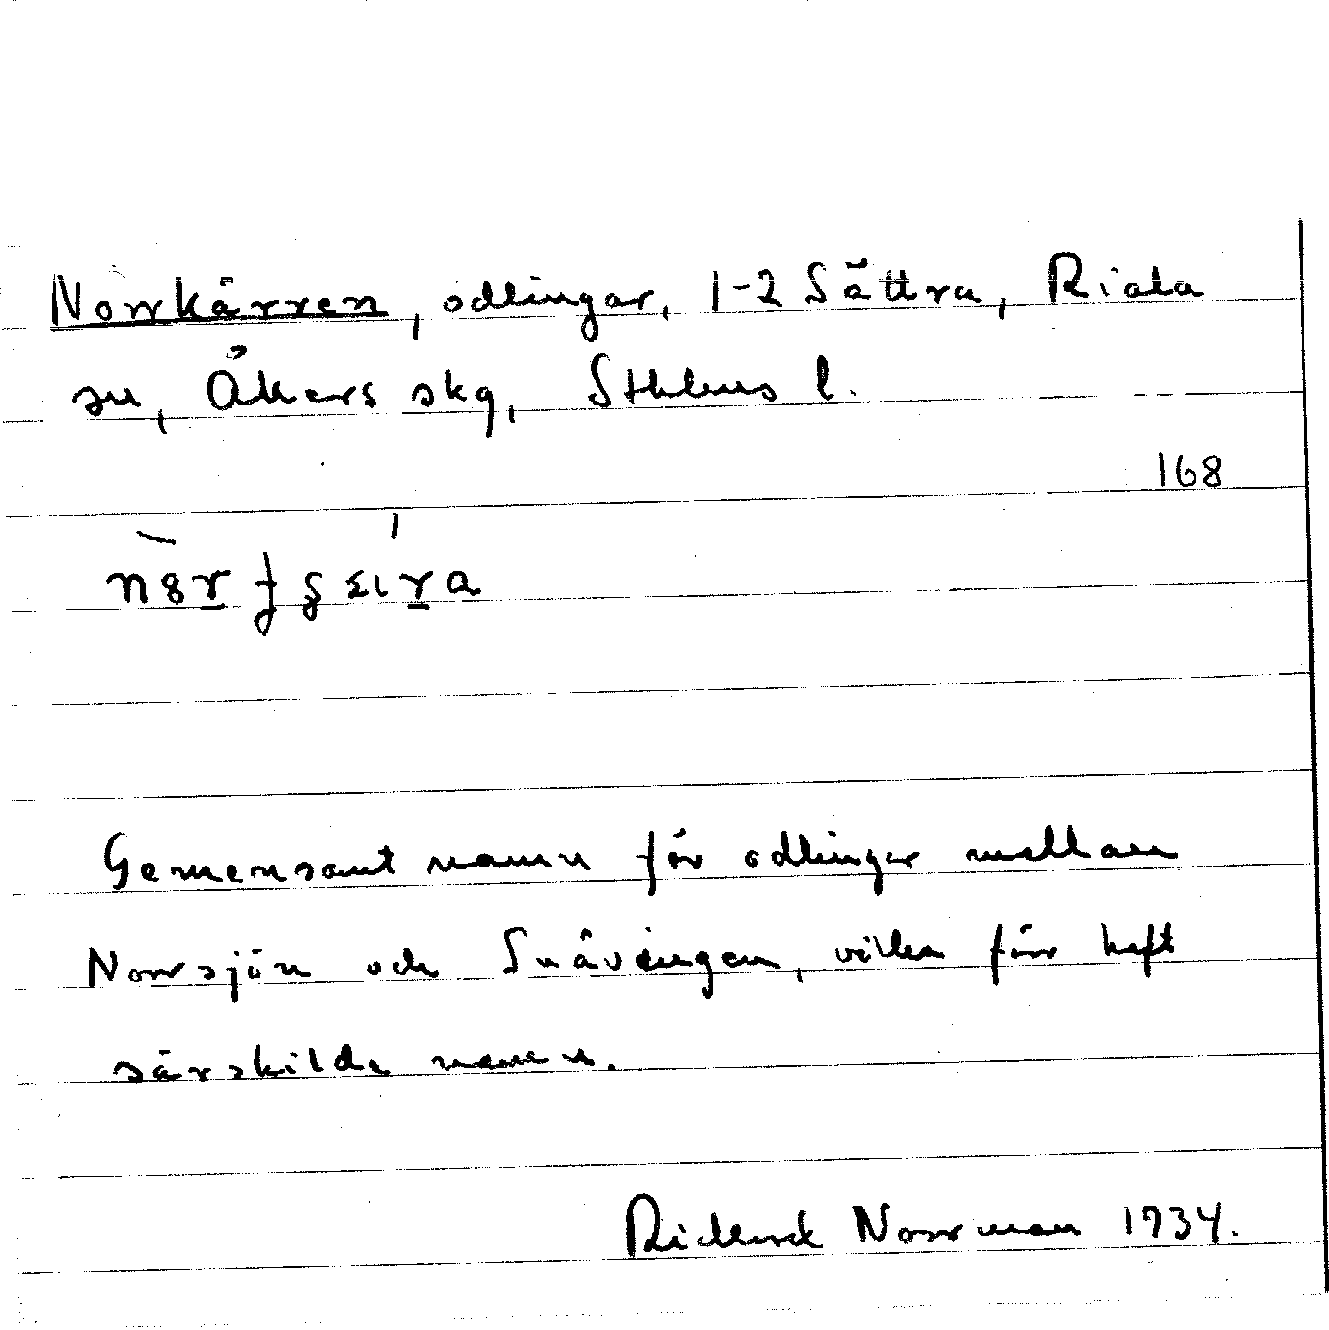 Norrkärren, odlingar, 1-2 Sättra, Riala
sn, Åkers skg, Sthlms l.
168
Gemensamt namn för odlingar mellan
Norrsjön och Snåvängen, vilka förr haft
särskilda namn.
Norrman 1934.